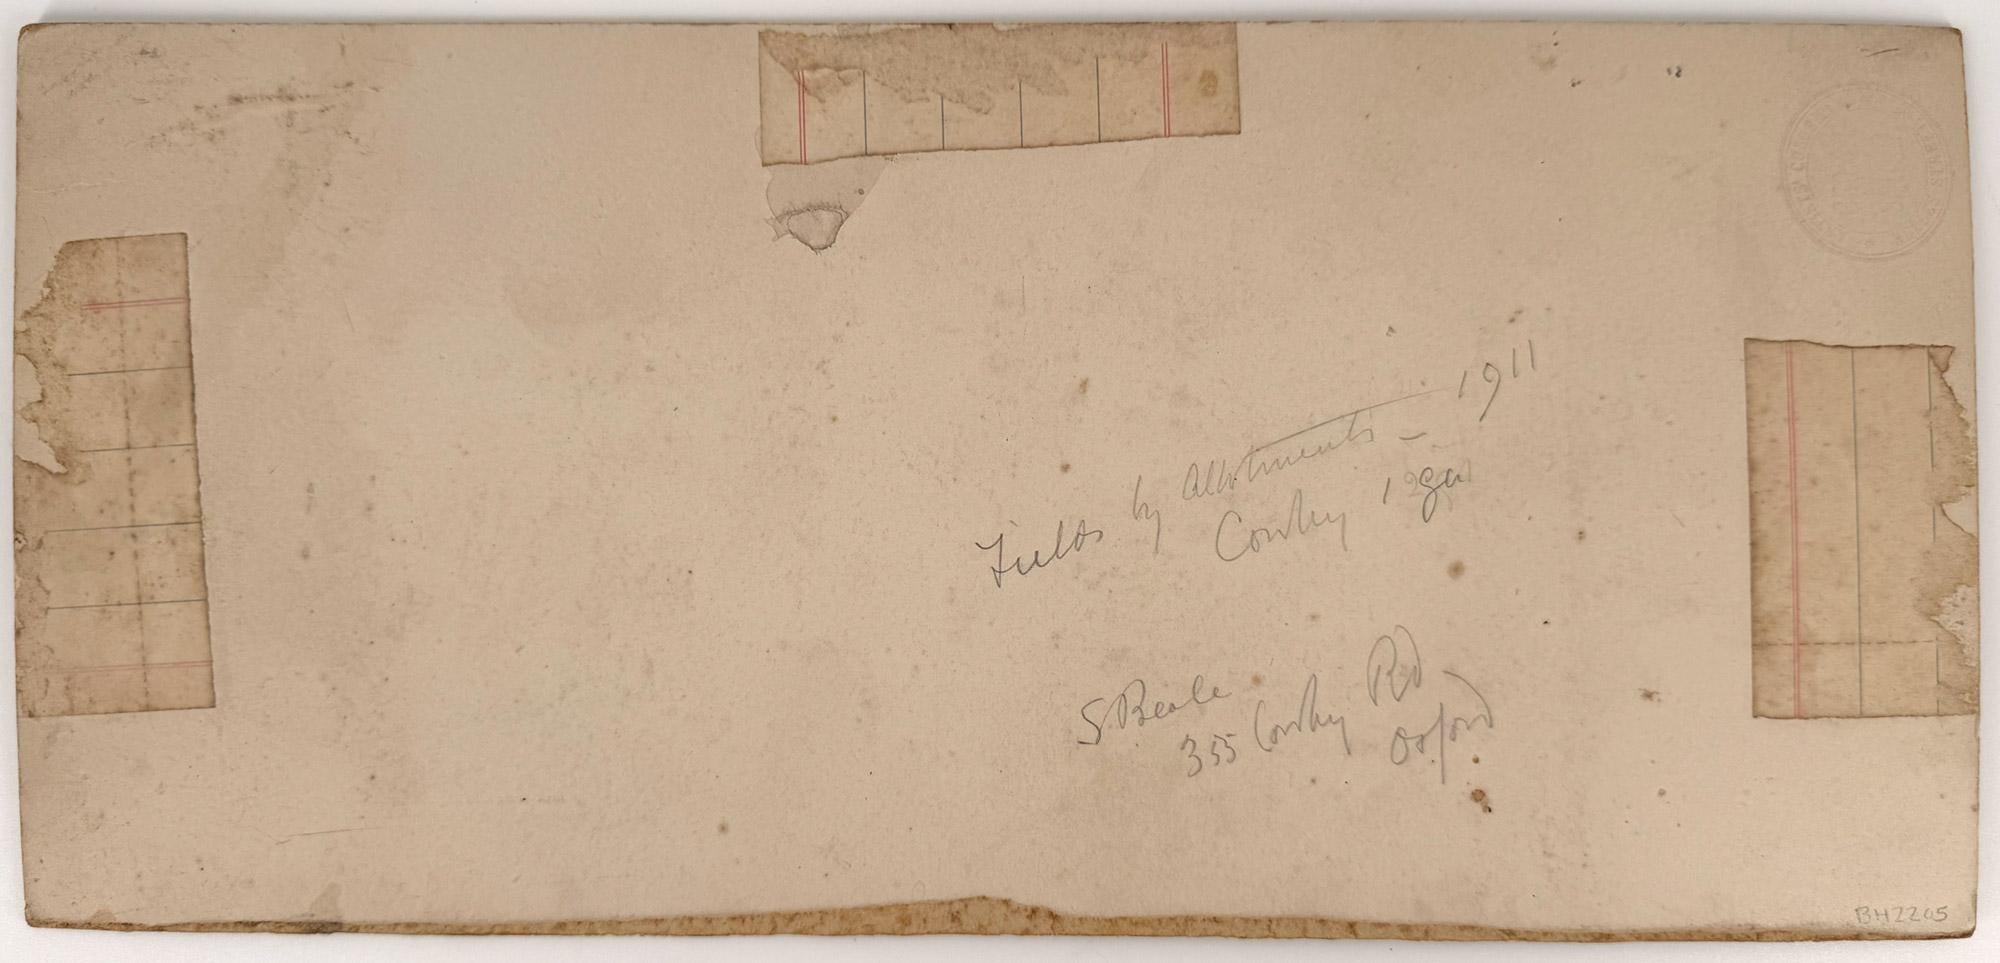 Fields by Allotments — 1911
Cowley 1 gn
S Beale
355 Cowley Rd
Oxford
BH2205